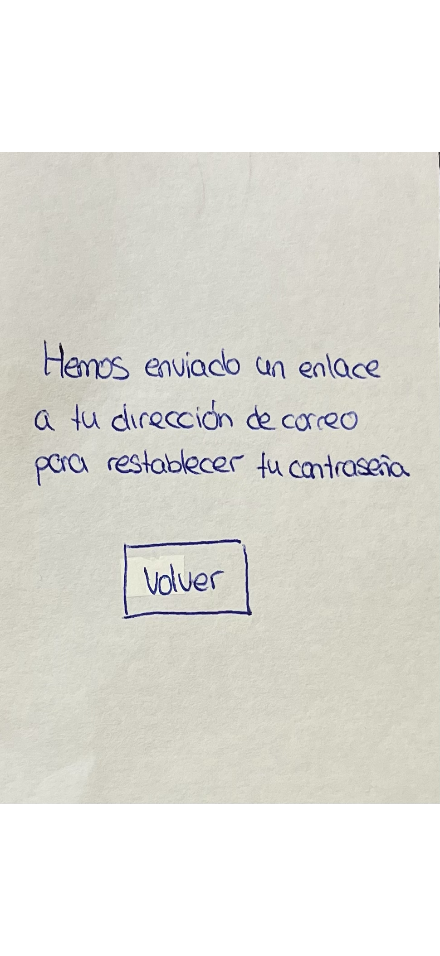 Hemos enviado un enlace
a tu dirección de correo
para restablecer tu contraseña
Volver